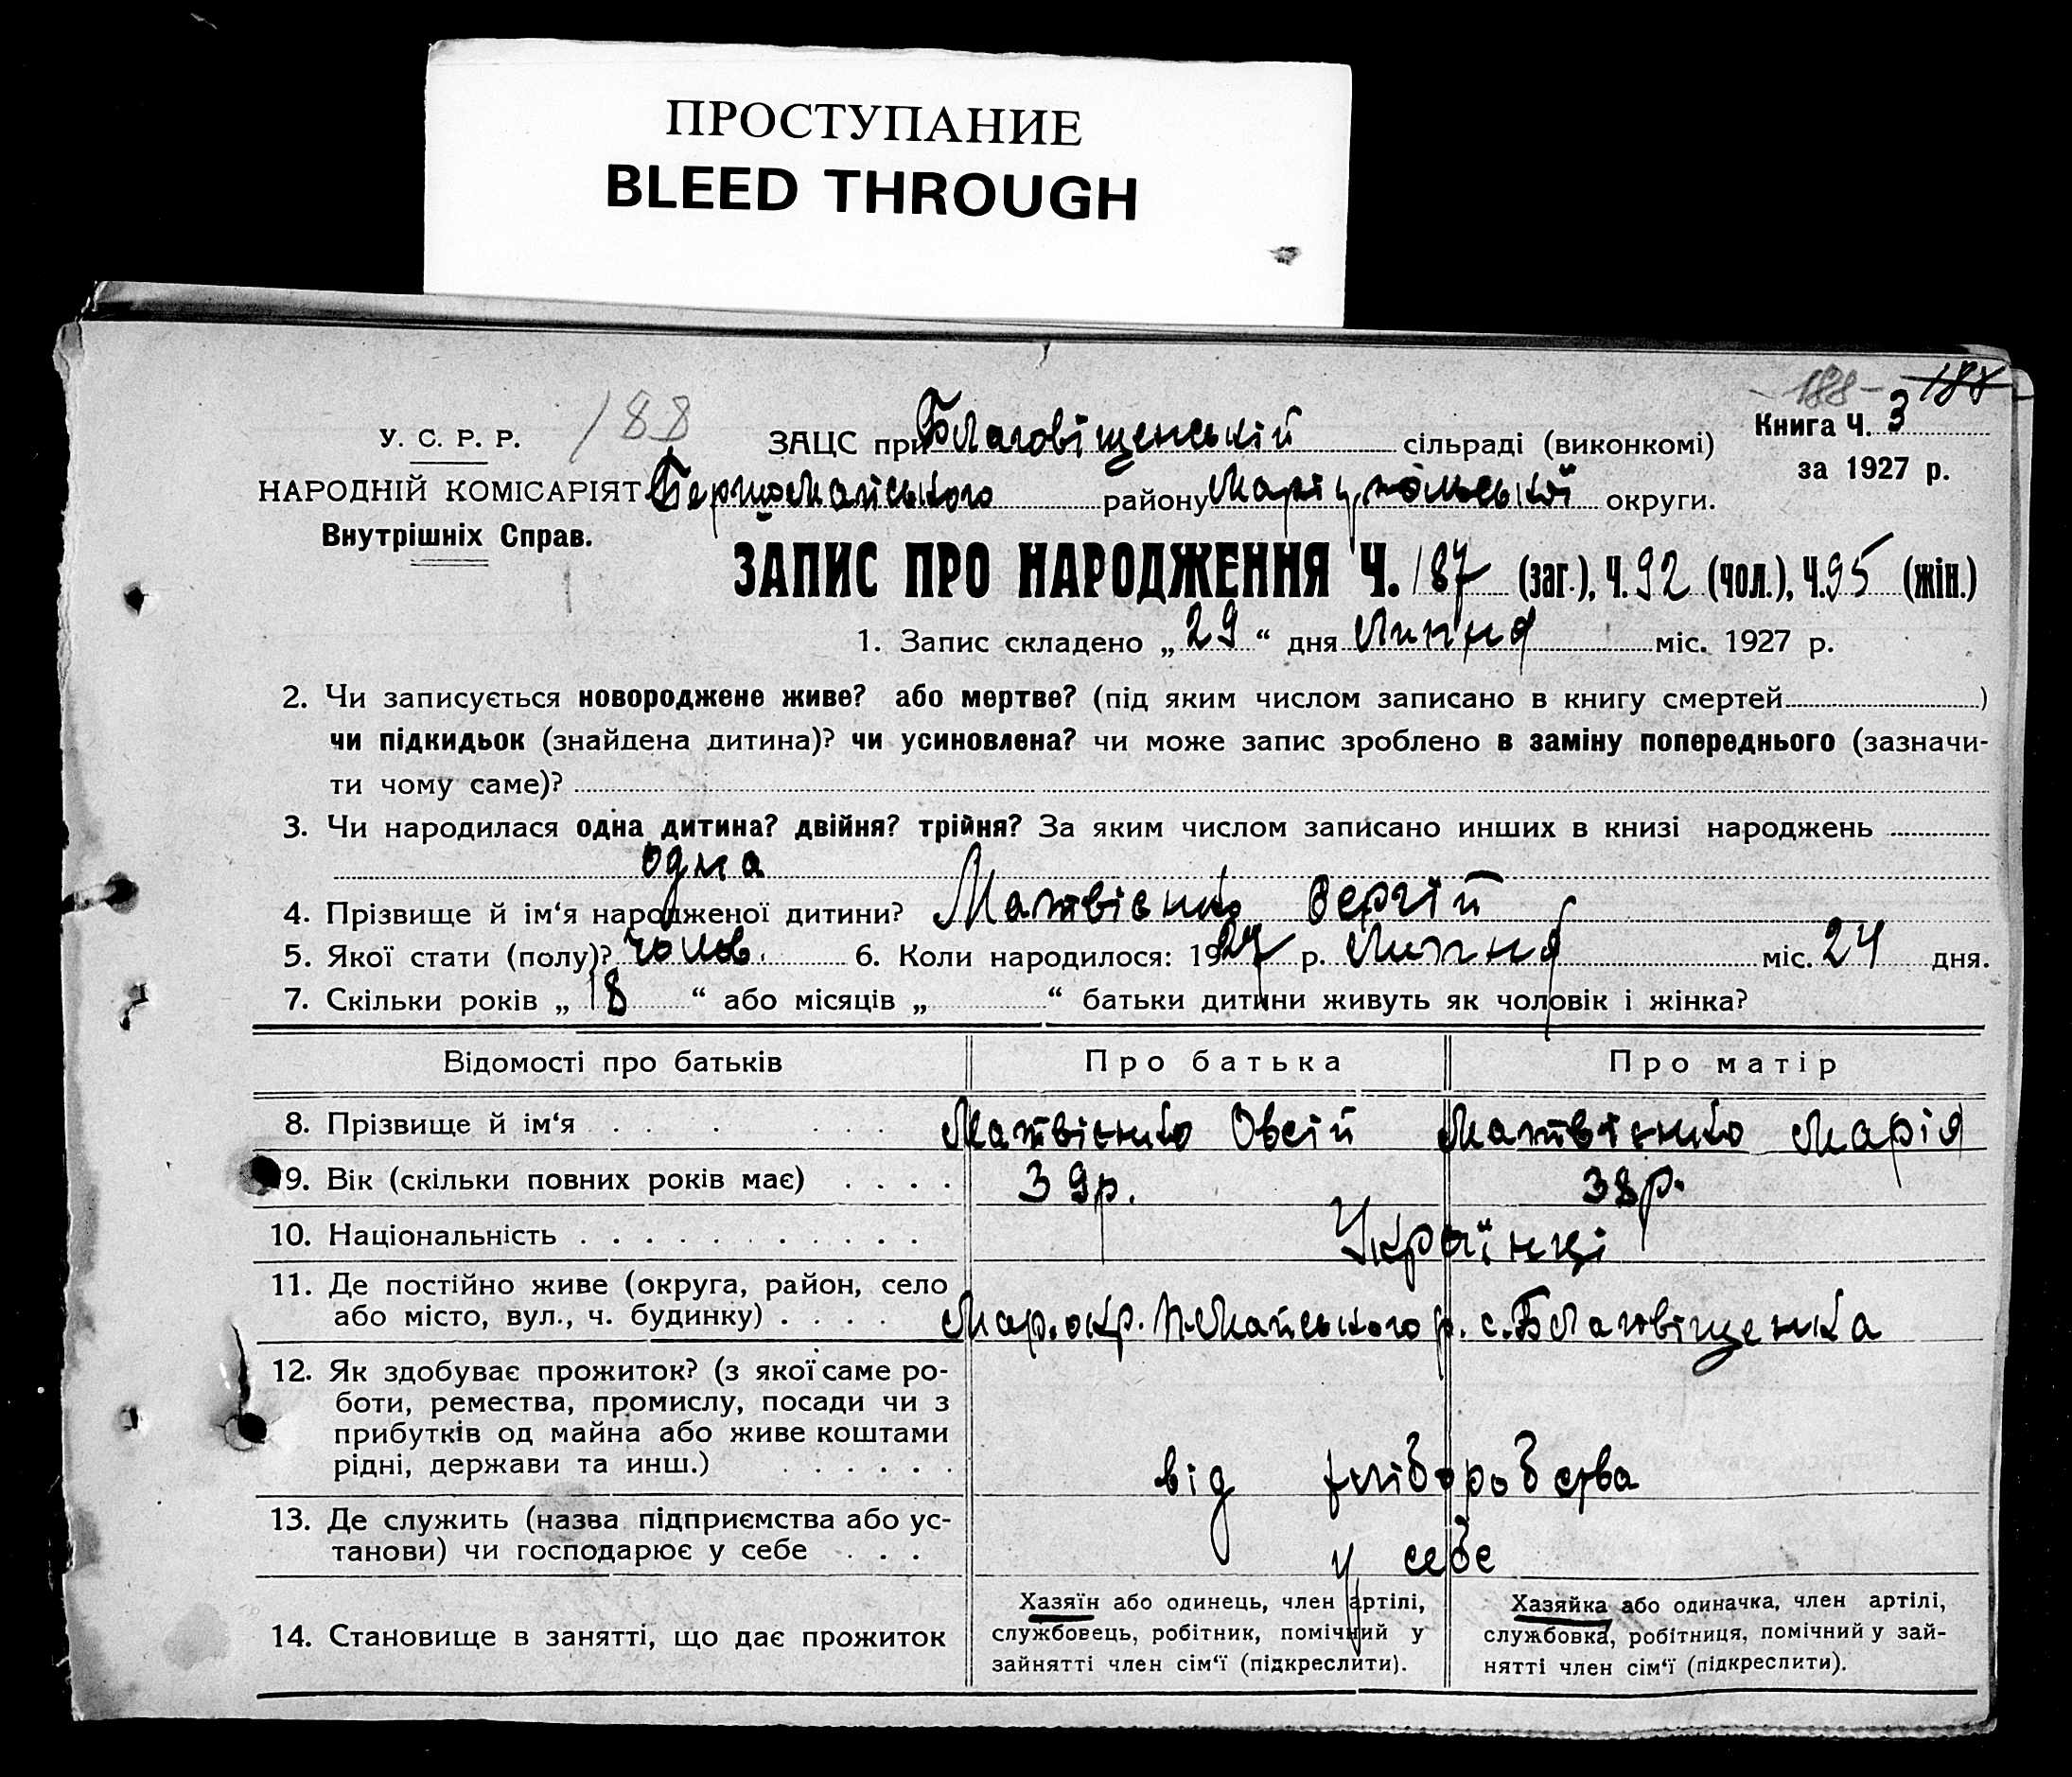 ПРОСТУПАНИЕ
BLEED THROUGH
188- 188
У. С. Р. Р. 188 ЗАЦС при Благовіщенській сільраді (виконкомі) Книга Ч. 3
за 1927 р.
НАРОДНІЙ КОМІСАРІЯТ Першомайського району Маріупольської округи.
Внутрішніх Справ.
ЗАПИС ПРО НАРОДЖЕННЯ Ч. 187 (заг.), Ч. 92 (чол.), Ч. 95 (жін.)
1. Запис складено „ 29 “ дня Липня міс. 1927 р.
2. Чи записується новороджене живе? або мертве? (під яким числом записано в книгу смертей )
чи підкидьок (знайдена дитина)? чи усиновлена? чи може запис зроблено в заміну попереднього (зазначи-
ти чому саме)?
3. Чи народилася одна дитина? двійня? трійня? За яким числом записано инших в книзі народжень
одна
4. Прізвище й ім‘я народженої дитини? Матвієнко Сергій
5. Якої стати (полу)? чолов. 6. Коли народилося: 1927 р. Липня міс. 24 дня.
7. Скільки років „ 18 “ або місяців „ “ батьки дитини живуть як чоловік і жінка?
Відомості про батьків Про батька Про матір
8. Прізвище й ім‘я Матвієнко Овсій Матвієнко Марія
9. Вік (скільки повних років має) 39р. 38р.
10. Національність Українці
11. Де постійно живе (округа, район, село
або місто, вул., ч. будинку) Мар. окр. П-Майського р. с. Благовіщенка
12. Як здобуває прожиток? (з якої саме ро-
боти, ремества, промислу, посади чи з
прибутків од майна або живе коштами
рідні, держави та инш.) від хліборобства
13. Де служить (назва підприємства або ус-
танови) чи господарює у себе у себе
14. Становище в занятті, що дає прожиток
Хазяїн або одинець, член артілі,
службовець, робітник, помічний у
зайнятті член сім‘ї (підкреслити).
Хазяйка або одиначка, член артілі,
службовка, робітниця, помічний у зай-
нятті член сім‘ї (підкреслити).